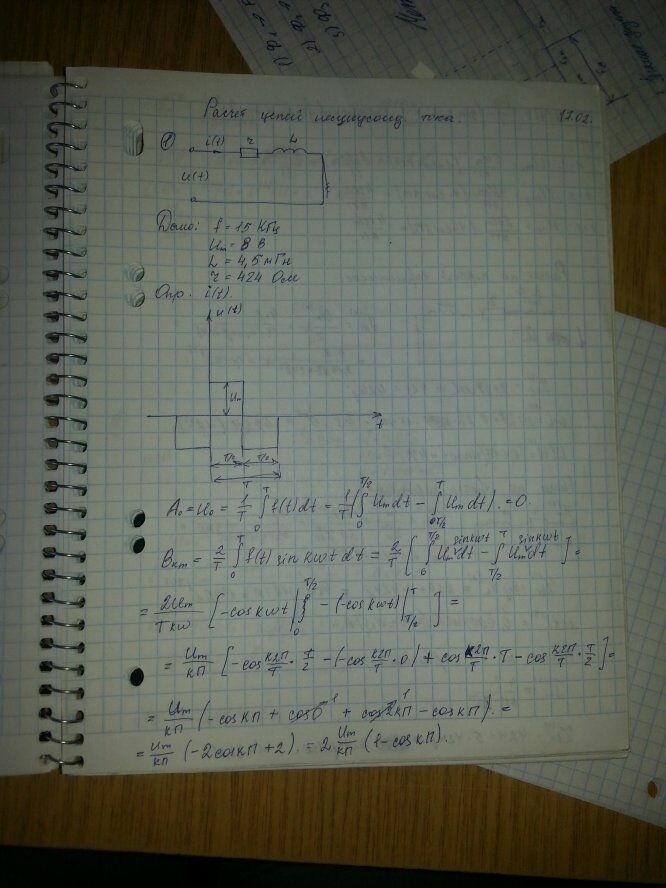 Расчет цепей несинусоид. тока.
17.02.
1 i(t) r L
u(t)
Дано: f = 15 кГц
Um = 8 В
L = 4,5 мГн
r = 424 Ом
Опр. i(t).
u(t)
Um
t
T/2 T/2
T
A₀ = U₀ = 1/T ∫₀ᵀ f(t)dt = 1/T (∫₀^(T/2) Um dt − ∫_(T/2)^T Um dt) = 0.
Bкm = 2/T ∫₀ᵀ f(t) sin kωt dt = 2/T [∫₀^(T/2) Um sin kωt dt − ∫_(T/2)^T Um sin kωt dt] =
= 2Um/Tkω [−cos kωt |₀^(T/2) − (−cos kωt)|_(T/2)^T] =
= Um/кП [−cos к2П/T · T/2 − (−cos к2П/T · 0) + cos к2П/T · T − cos к2П/T · T/2] =
= Um/кП (−cos кП + cos 0 →1 + cos 2кП →1 − cos кП). =
= Um/кП (−2cos кП + 2). = 2 Um/кП (1 − cos кП).